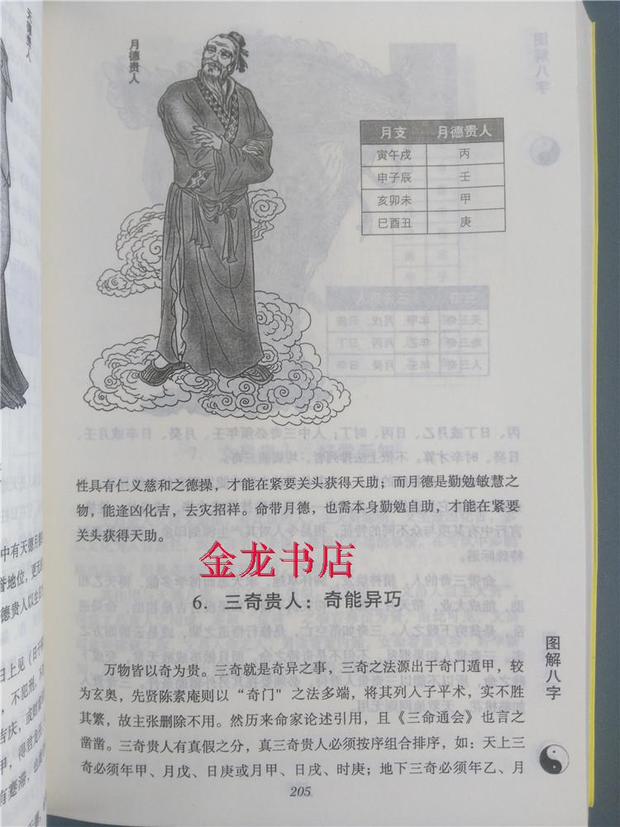 月德贵人
图解八字
月支 月德贵人
寅午戌 丙
申子辰 壬
亥卯未 甲
巳酉丑 庚
性具有仁义慈和之德操，才能在紧要关头获得天助；而月德是勤勉敏慧之
物，能逢凶化吉，去灾招祥。命带月德，也需本身勤勉自助，才能在紧要
关头获得天助。
金龙书店
6. 三奇贵人：奇能异巧
万物皆以奇为贵。三奇就是奇异之事，三奇之法源出于奇门遁甲，较
为玄奥，先贤陈素庵则以“奇门”之法多端，将其列人子平术，实不胜
其繁，故主张删除不用。然历来命家论述引用，且《三命通会》也言之
凿凿。三奇贵人有真假之分，真三奇贵人必须按序组合排序，如：天上三
奇必须年甲、月戊、日庚或月甲、日戊、时庚；地下三奇必须年乙、月
图解八字
205